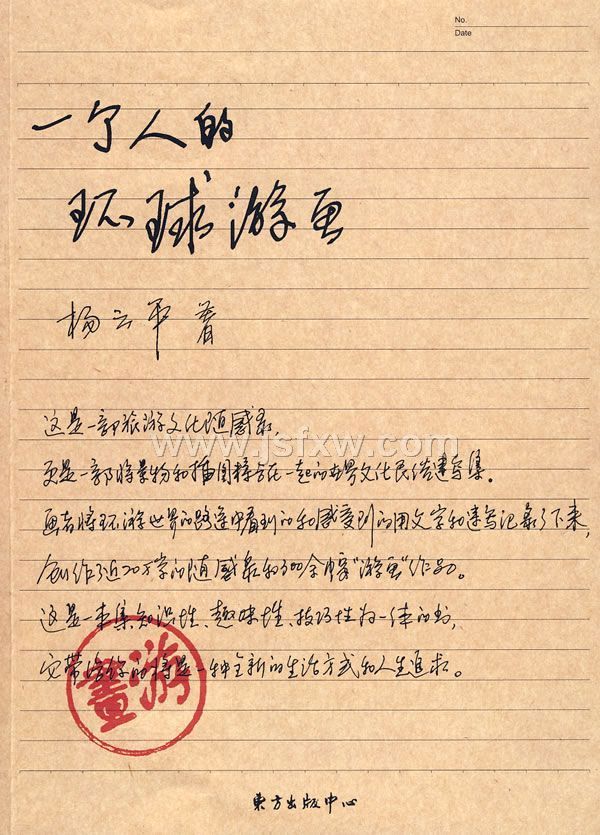 No.
Date
一个人的
环球游画
杨云平 著
这是一部旅游文化随感录,
www.jsfxw.com
更是一部将景物和插图糅合在一起的世界文化民俗速写集。
画者将环游世界的路途中看到的和感受到的用文字和速写记录了下来,
创作了近20万字的随感录和300余幅"游画"作品。
这是一本集知识性、趣味性、技巧性为一体的书,
它带给你的将是一种全新的生活方式和人生追求。
游畫
東方出版中心